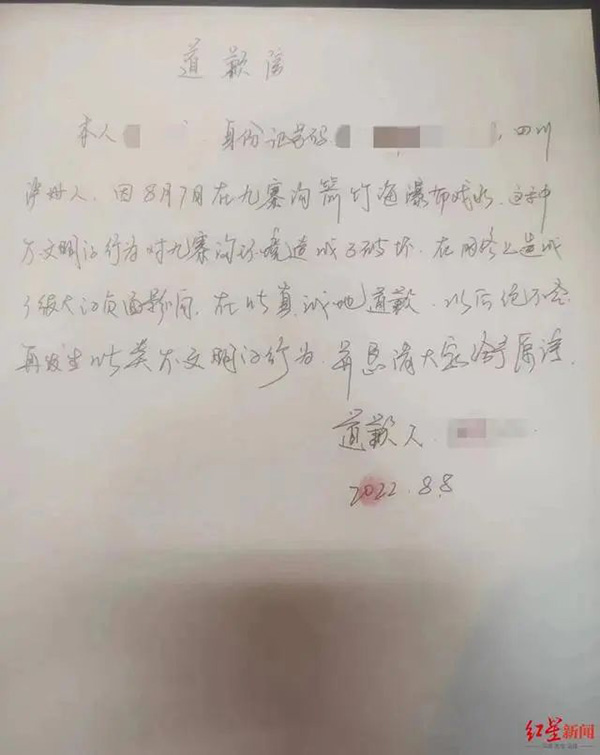 道歉信
本人 身份证号码 , 四川
人, 因8月7日在九寨沟箭竹海瀑布戏水, 这种
不文明的行为对九寨沟环境造成了破坏, 在网络上造成
了极大的负面影响, 在此真诚地道歉, 以后绝不会
再发生此类不文明的行为, 并恳请大家给予原谅.
道歉人
2022.8.8
红星新闻